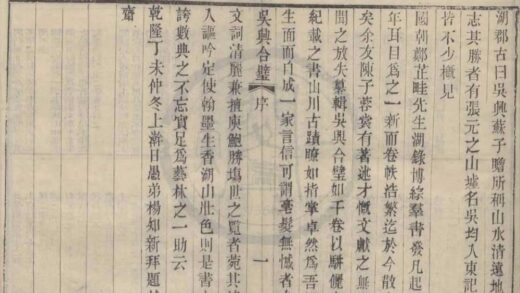 湖郡古曰吳興蘇子瞻所稱山水清遠地
志其勝者有張元之山墟名吳均入東記
皆不少槪見
國朝鄭芷畦先生湖錄博綜羣書發凡起
年耳目爲之一新而卷帙浩繁迄於今散
矣余友陳子蓉裳有著述才慨文獻之無
間之放失纂輯吳興合璧如干卷以駢儷
紀載之書山川古蹟瞭如指掌卓然爲吾
生面而自成一家言信可謂毫髮無憾者
吳興合璧 序 一
文詞清麗兼擅庾鮑勝塲世之覽者菀其
人謳吟定使翰墨生香湖山壯色則是書
誇數典之不忘實足爲藝林之一助云
乾隆丁未仲冬上澣日愚弟楊知新拜題
齋